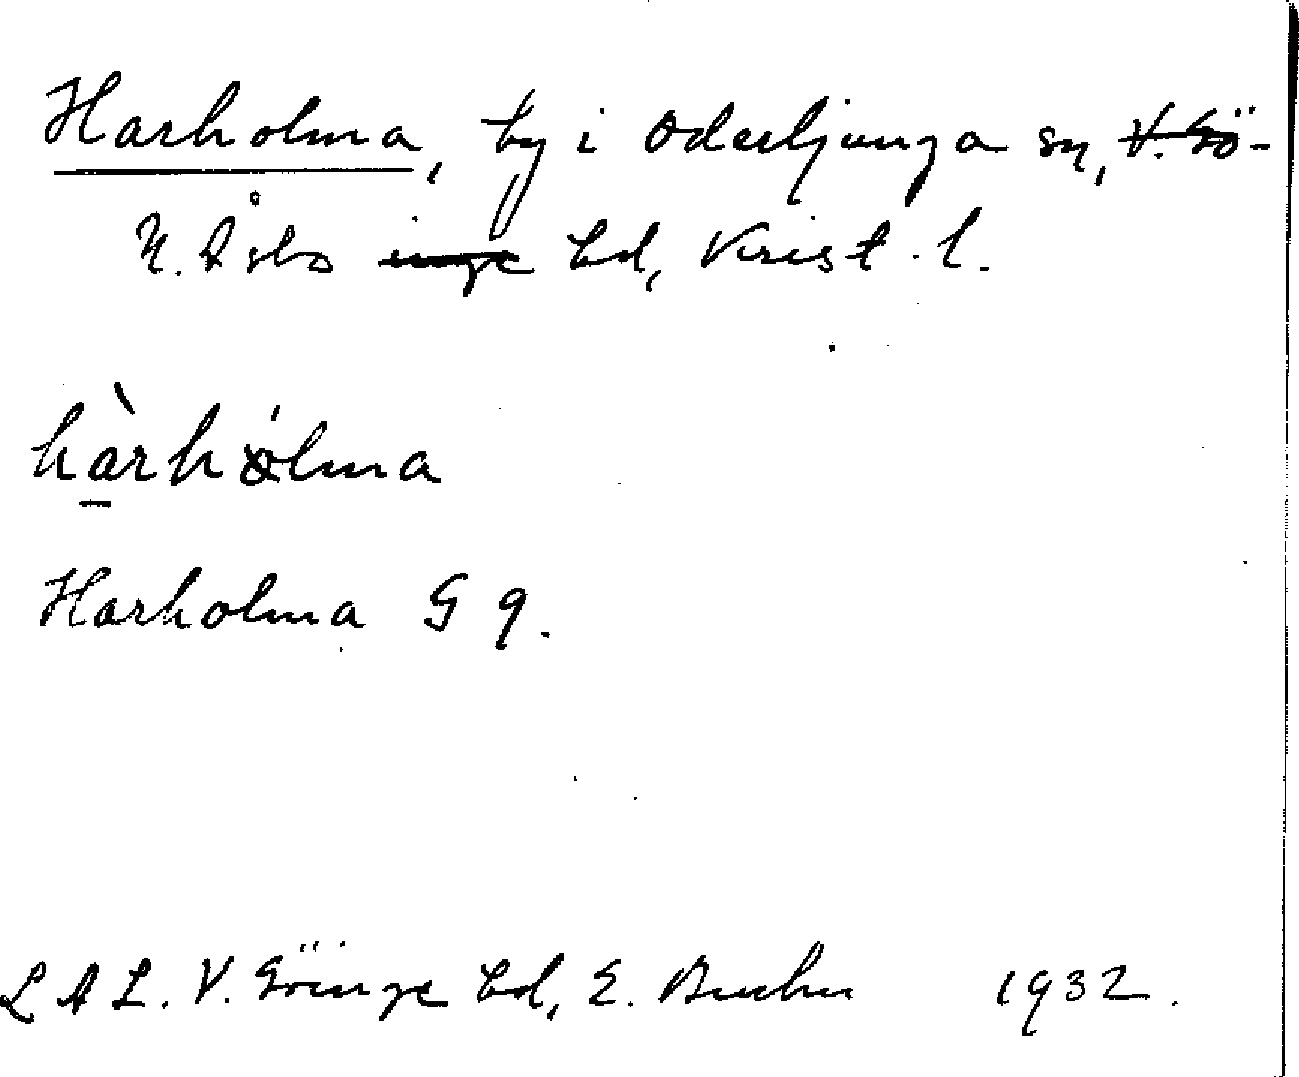 Harholma, by i Oderljunga sn, V. Gö-
N. Åsbo inge hd, Krist. l.
hàrhólma
Harholma G 9.
L A L. V. Göinge hd, E.          1932.